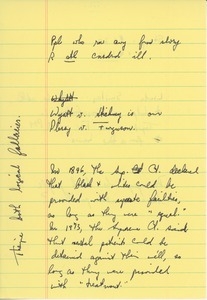 Ppl who
Wyatt
Wyatt v. is our
Plessy v. Ferguson.
In 1896, the Sup. Ct. declared
that black & white could be
provided with separate facilities,
as long as they were "equal".
In 1973, the Supreme Ct. said
that mental patients could be
detained against their will, so
long as they were provided
with "treatment."
both logical fallacies.